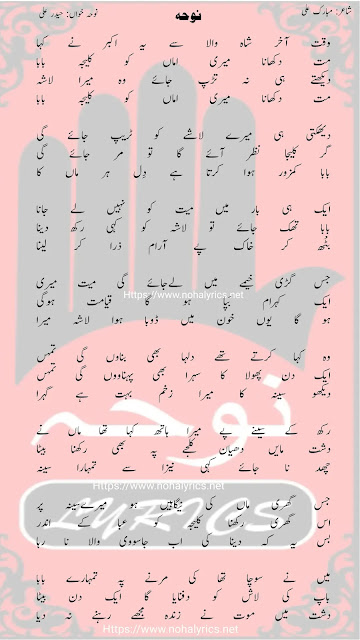 شاعر: مبارک علی
نوحہ
نوحہ خواں: حیدر علی
وقت آخر شاہ والا سے یہ اکبر نے کہا
مت دکھانا میری اماں کو کلیجہ بابا
دیکھتے ہی نہ تڑپ جائے وہ میرا لاشہ
مت دکھانا میری اماں کو کلیجہ بابا
دیکھکتی ہی میرے لاشے کو تڑپ جائے گی
گر کلیجا نظر آئے گا تو مر جائے گی
بابا کمزور ہوا کرتا ہے دل ہر ماں کا
ایک ہی بار میں میت کو نہیں لے جانا
بابا تھک جائے تو لاشہ کو کہی رکھ دینا
بٹھ کر خاک پے آرام ذرا کر لینا
جس گڑی خیمے میں لےجائے گی میت میری
Https://www.nohalyrics.net
ایک کہرام بپا ہو گا قیامت ہوگی
ہو گا یوں خون میں ڈوبا ہوا لاشہ میرا
وہ کہا کرتے تھے دلہا بھی بناوں گی تمہیں
ایک دن پھولا کا سہرا بھی پہناووں گی تمہیں
دیکھو سینہ کا میرا زخم بہت ہے گہرا
نوحہ
رکھ کے سینے پے میرا ہاتھ کہا تھا ماں نے
دشت مایں دھیان کلجے پہ بھی رکھنا بیٹا
چھد نا جائے کہی نیزا سے تمہارا سینہ
Https://www.nohalyrics.net
LYRICS
جس گھری ماں کی نیگاہیں ہو میرےسینہ پر
اس گھری رکھنا کلیجہ کو عبا کے اندر
بس یہ کہ دینا کی اب جاسووی والا نا رہا
میں نے سوچا تھا کی مرنے پہ تمہارے بابا
باپ کی لاش کو دفنایا گا ایک دن بیٹا
دشت میں موت نے زندہ مجھے رہنے نہ دیا
Https://www.nohalyrics.net